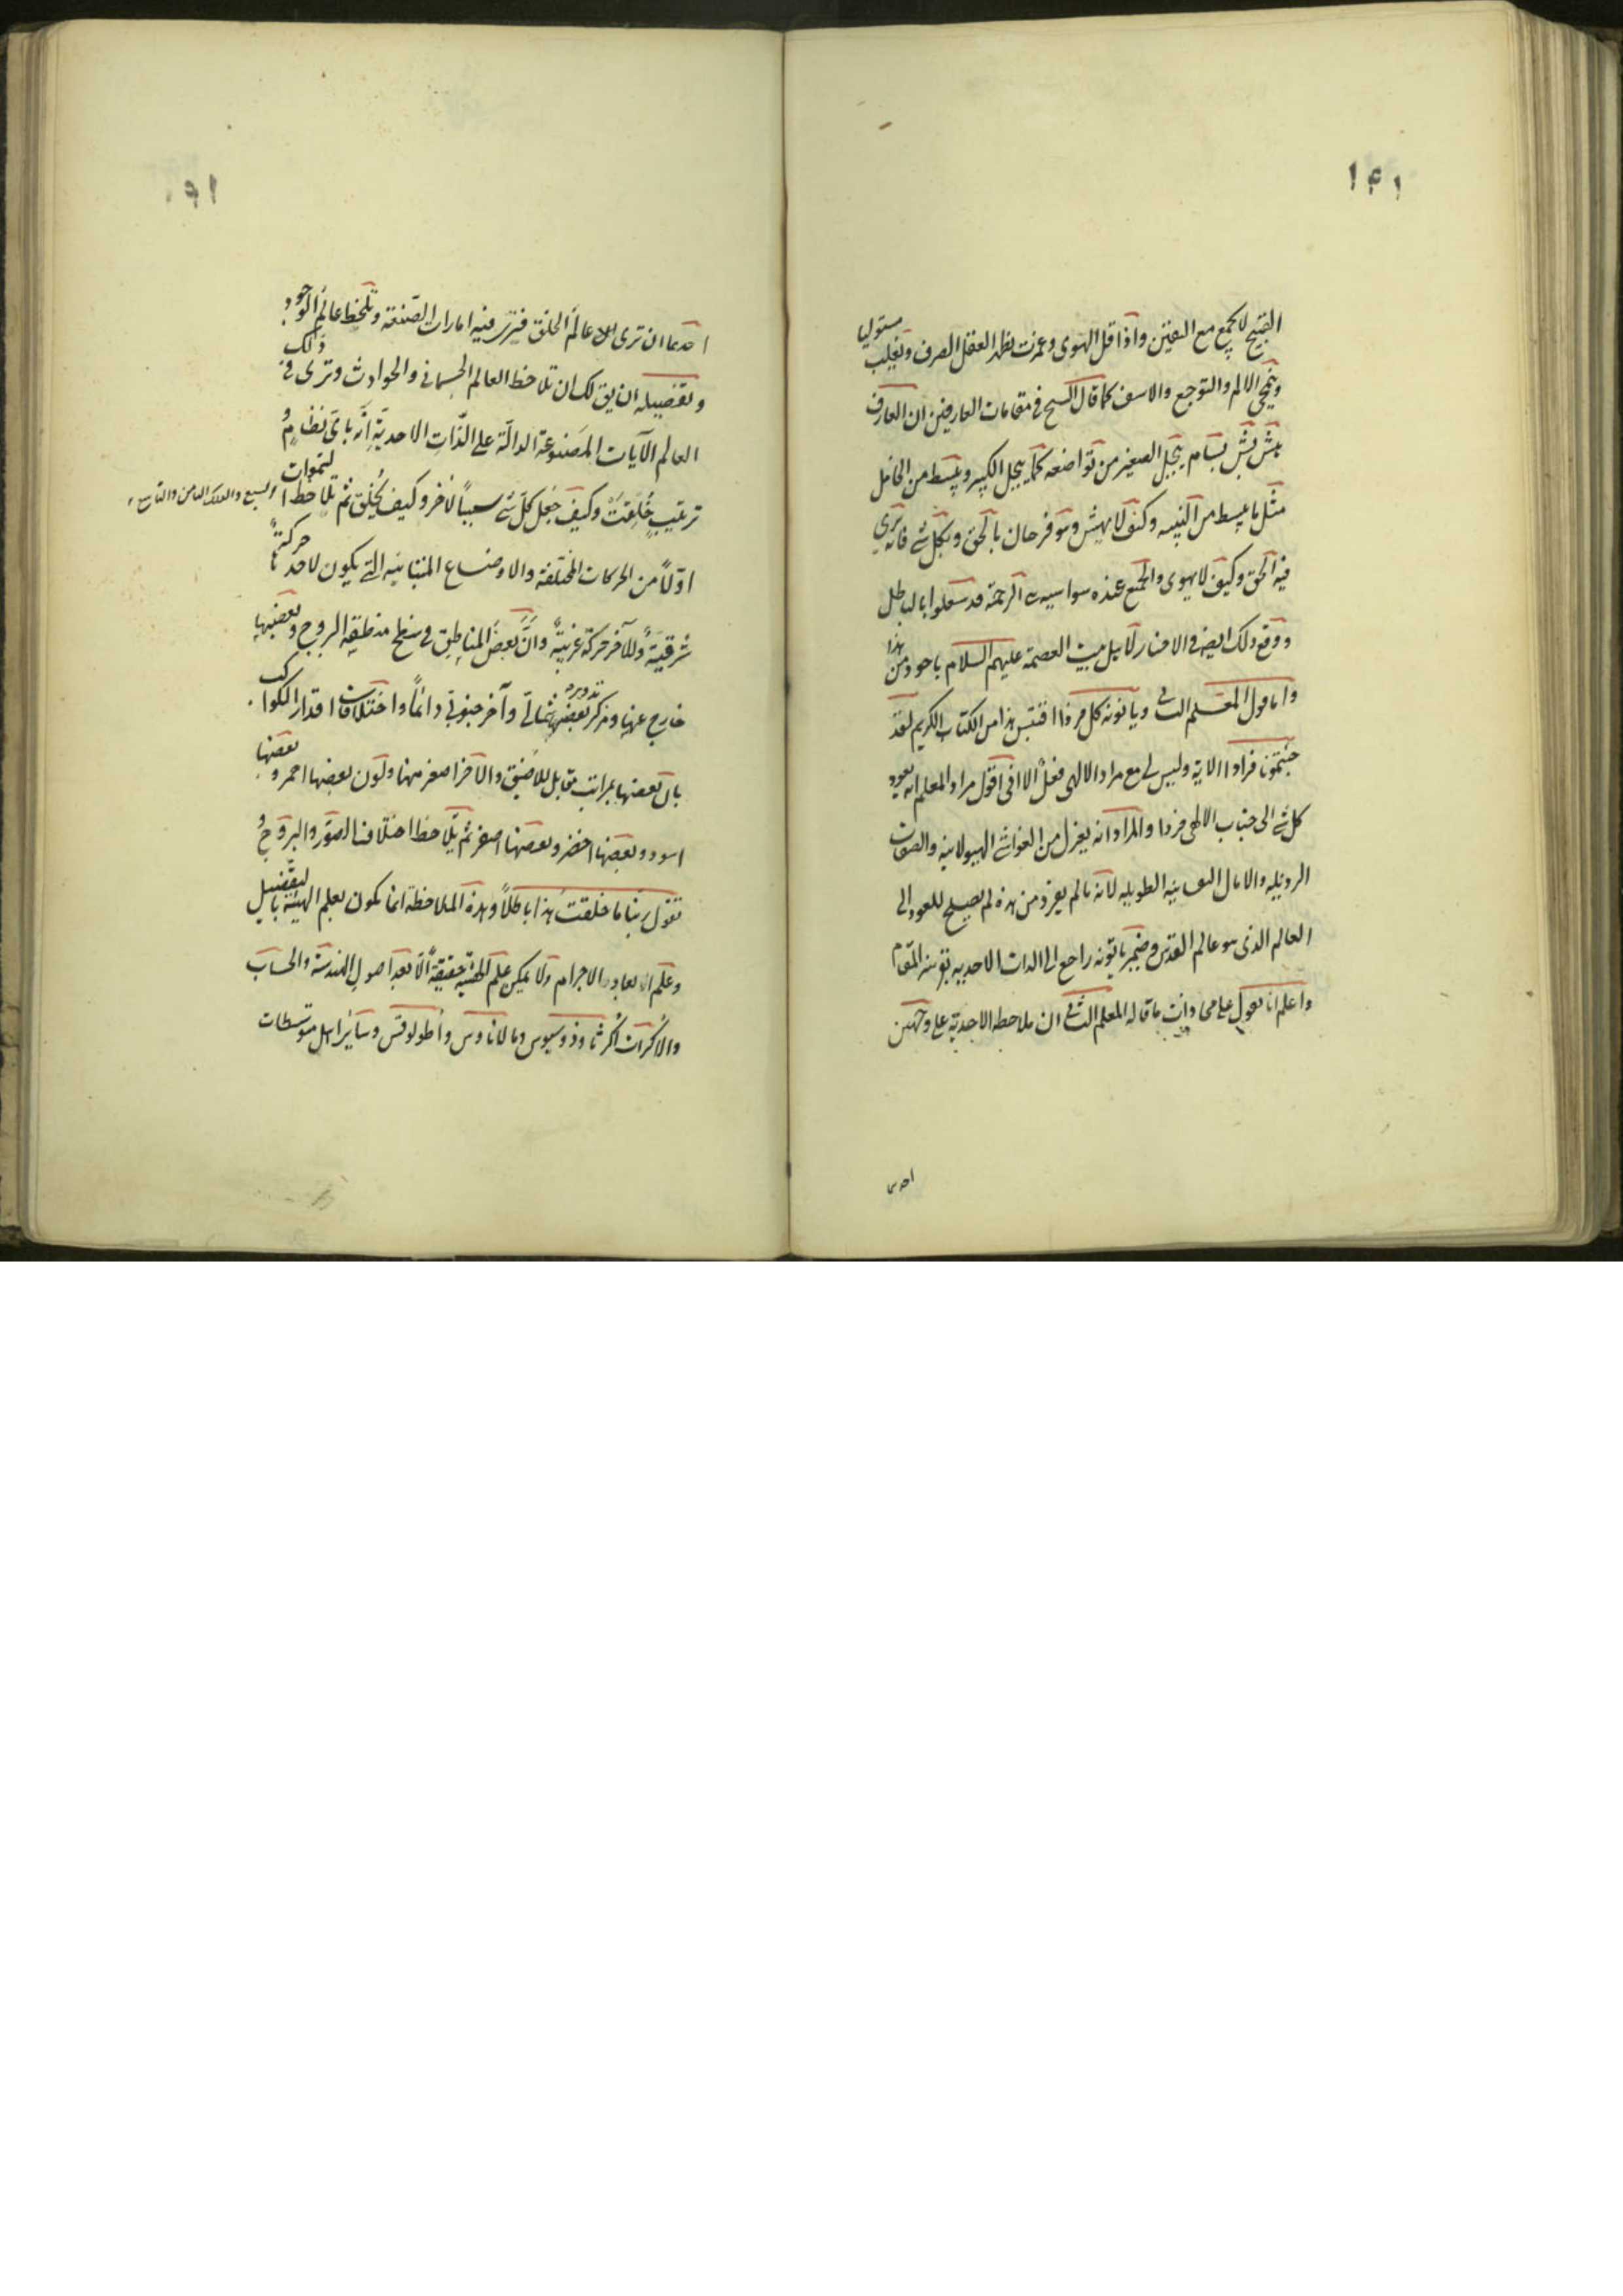 ١٤١
القبيح لا يجمع مع اليقين واذا قل الهوى وعزت يظهر العقل الصرف ويغلب مستوليا
وينمحي الالم والتوجع والاسف كما قال الشيخ في مقامات العارفين ان العارف
هش بش بسام يبجل الصغير من تواضعه كما يبجل الكبير وينبسط من الخامل
مثل ما ينبسط من النبيه وكيف لا يهش وهو فرحان بالحق وبكل شئ فانه يرى
فيه الحق وكيف لا يسوى والجميع عنده سواسيه اهل الرحمة قد شغلوا بالباطل
ووقع ذلك ايضا في الاخبار لاهل بيت العصمة عليهم السلام ومن هذا
واما قول المعلم الثاني ويأتونه كل فردا اقتبس هذا من الكتاب الكريم لقد
جئتمونا فرادا الاية وليس لي مع مراد الالهى فعل الا اني اقول مراد المعلم انه يعود
كل شئ الى جناب الالهى فردا والمراد انه يعزل من الغواشي الهيولانيه والصفات
الرذيله والامال الطويله لانه ما لم يفرد من هذه لم يصلح للعود الى
العالم الذى هو عالم القدس وضمير ياتونه راجع الى الذات الاحديه بقرينة المقام
واعلم انا نقول على ما قاله المعلم الثاني ان ملاحظة الاحدية على وجهين
احدى
احدهما ان ترى الى عالم الخلق فترى فيه امارات الصنعة وتلحظ عالم الوجود
وتفصيله ان يق لك ان تلاحظ العالم الجسمانى والحوادث وترى في ذلك
العالم الآيات المصنوعة الدالّة على الذّات الاحديّة انّه باىّ نظامٍ
ترتيبٍ خُلِقتْ وكيف جعل كلّ شئ سبباً لآخر وكيف يُخلق ثم تلاحظ السّموات
السبع والفلك الثامن والتاسع
اوّلاً من الحركات المختلفة والاوضاع المتباينه التي يكون لاحدها حركةً
شرقيّةً وللآخر حركةً غربيّةً وانّ بعض المناطق في سطح منطقة البروج وبعضها
خارج عنها ومركز تدوير بعضها شمالىّ وآخر جنوبىّ دائماً واختلافات اقدار الكواكب
بان بعضها بمراتب والآخر اصغر منها ولون بعضها احمر وبعضها
اسود وبعضها اخضر وبعضها اصفر ثم يلاحظ اختلاف الصّور والبروجُ
تقول ربّنا ما خلقت هذا باطلاً وهذه الملاحظة انما يكون بعلم الهيئة بالتفصيل
وعلم الابعاد والاجرام ولا يمكن علم الهيئة حقيقةً الّا بعد اصول الهندسة والحساب
والأُكرات أُكر ثاوذوسيوس ومالاناوس وأطولوقس وسائر اهل متوسّطات